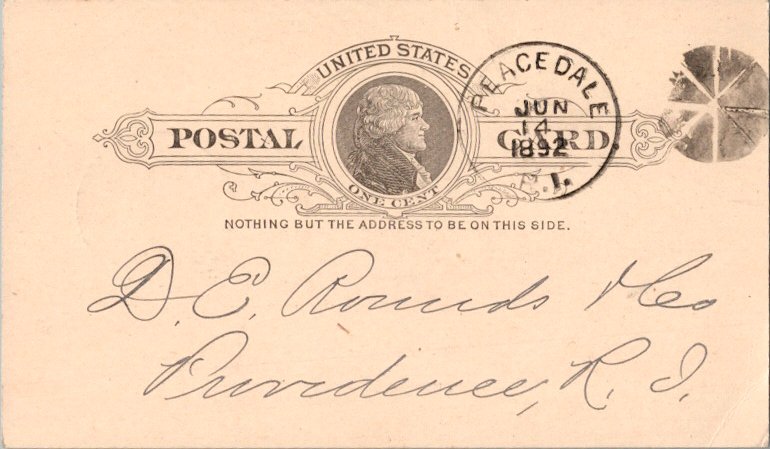 UNITED STATES
POSTAL CARD.
ONE CENT
PEACEDALE
JUN
14
1892
R.I.
NOTHING BUT THE ADDRESS TO BE ON THIS SIDE.
D. E. Rounds & Co
Providence, R. I.